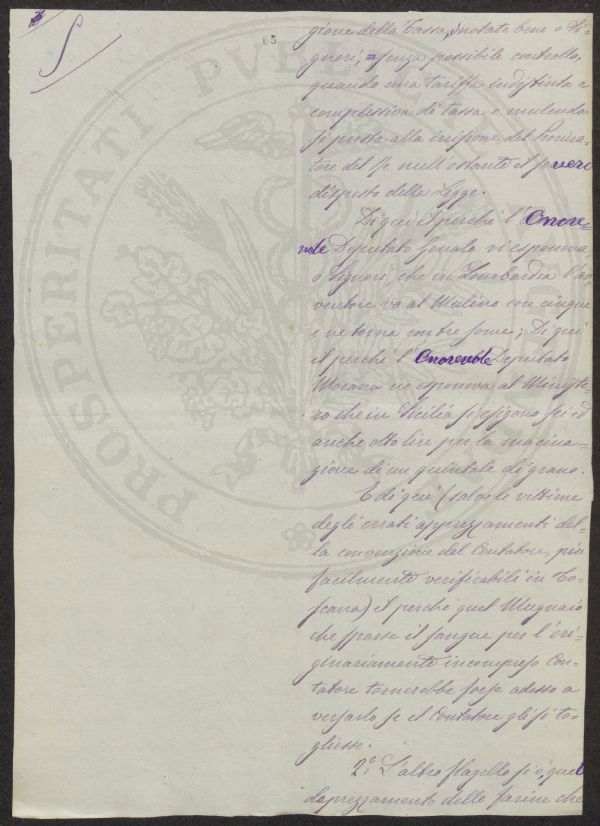 65
gione della Tassa, notate bene o Si-
gnori, senza possibile controllo,
quando una tariffa indistinta e
complessiva di tassa e mulenda
si presta alla irrisione del Procura-
tore del Re null'ostante il severo
disposto della Legge.
Di qui il perché l'Onore-
vole Deputato vi esponeva
o Signori, che in Lombardia l'av-
ventore va al Mulino con cinque
e ne torna con tre some; Di qui
il perché l'Onorevole Deputato
Morana ne esponeva al Ministe-
ro che in Sicilia si esigono sei ed
anche otto lire per la macina-
zione di un quintale di grano.
E di qui (salve le vittime
degli errati apprezzamenti del-
la convenzione del Contatore, più
facilmente verificabili in To-
scana) il perché quel Mugnaio
che sparse il sangue per l'ori-
ginariamente incompreso Con-
tatore tornerebbe forse adesso a
versarlo se il Contatore gli si to-
gliesse.
2.° L'altro flagello si è quel
deprezzamento delle farine che
PROSPERITATI PUBLICAE